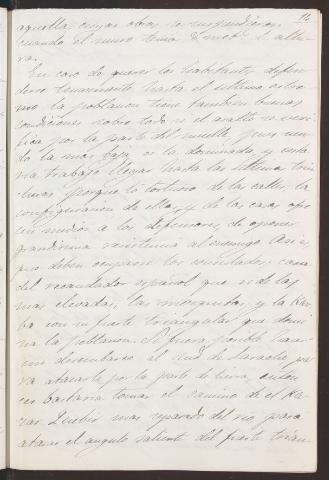 aquella cuyas obras se suspendieron
cuando el muro tenia 2 met.s de altu-
ra.
En caso de querer los habitantes defen-
derse tenazmente hasta el ultimo estre-
mo la poblacion tiene tambien buenas
condiciones sobre todo si el asalto se veri-
fica por la parte del muelle, pues sien-
do la mas baja es la dominada, y costa-
ria trabajo llegar hasta las ultimas trin-
cheras, porque lo tortuoso de las calles, la
configuracion de ellas y de las casas ofre-
cen medios a los defensores, de oponer
grandisima resistencia al enemigo. Asi es
que deben ocuparse los consulados, casa
del recaudador español que es de las
mas elevadas, las mezquitas, y la Kaz-
ba con su fuerte triangular que domi-
na la poblacion. Si fuera posible hacer
un desembarco al Sud de Larache, pa-
ra atacarla por la parte de tierra, enton-
ces bastaria tomar el camino de el Ka-
zar Quibir mas separado del rio para
atacar el angulo saliente del fuerte trian-